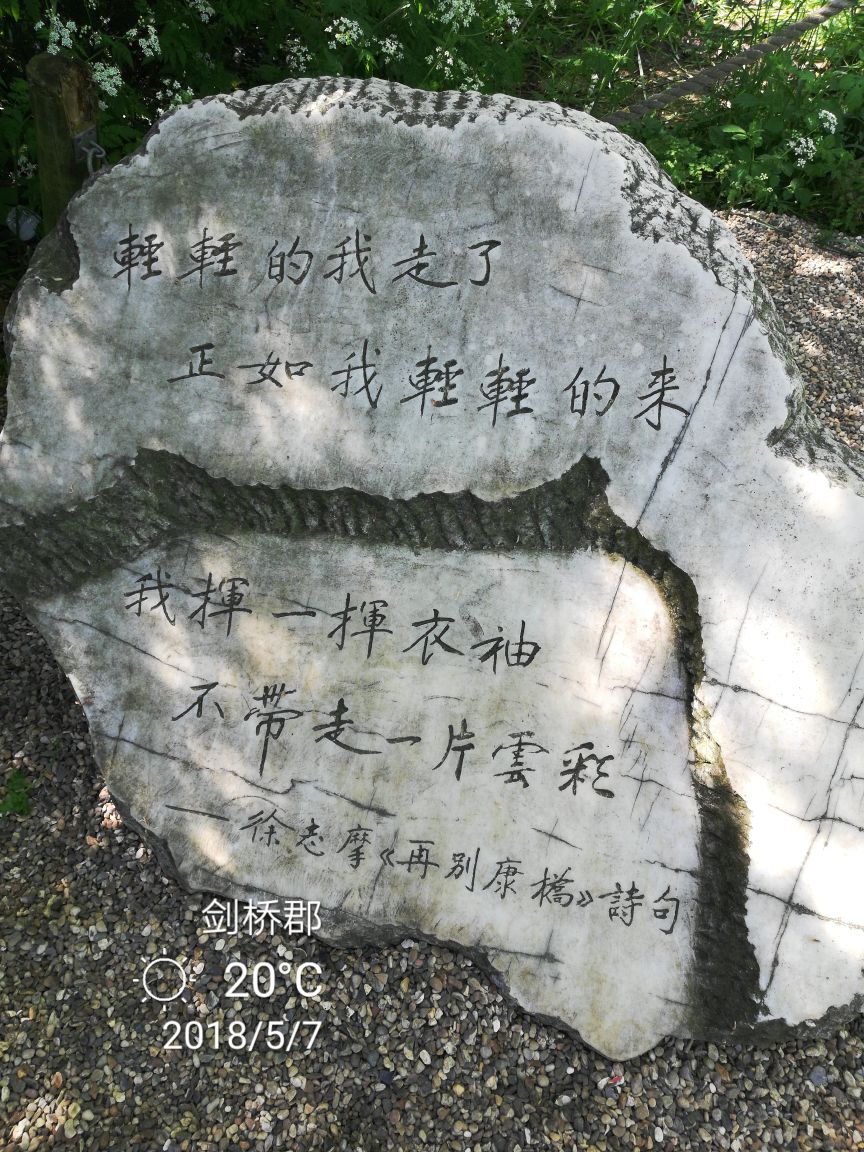 輕輕的我走了
正如我輕輕的来
我揮一揮衣袖
不帶走一片雲彩
—徐志摩《再别康橋》詩句
剑桥郡
20°C
2018/5/7